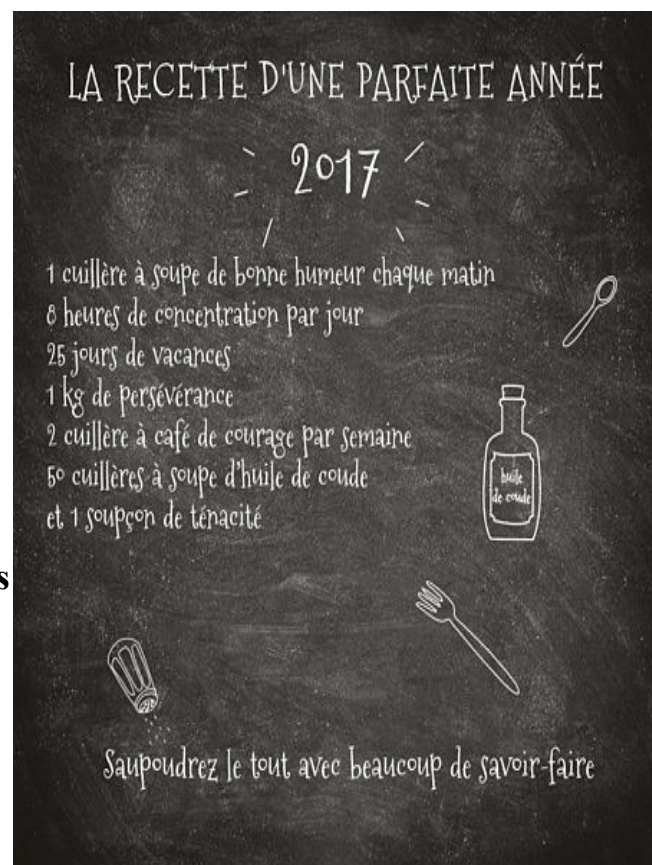 LA RECETTE D'UNE PARFAITE ANNÉE
2017
1 cuillère à soupe de bonne humeur chaque matin
8 heures de concentration par jour
25 jours de vacances
1 kg de persévérance
2 cuillère à café de courage par semaine
50 cuillères à soupe d'huile de coude
et 1 soupçon de ténacité
huile
de coude
s
Saupoudrez le tout avec beaucoup de savoir-faire